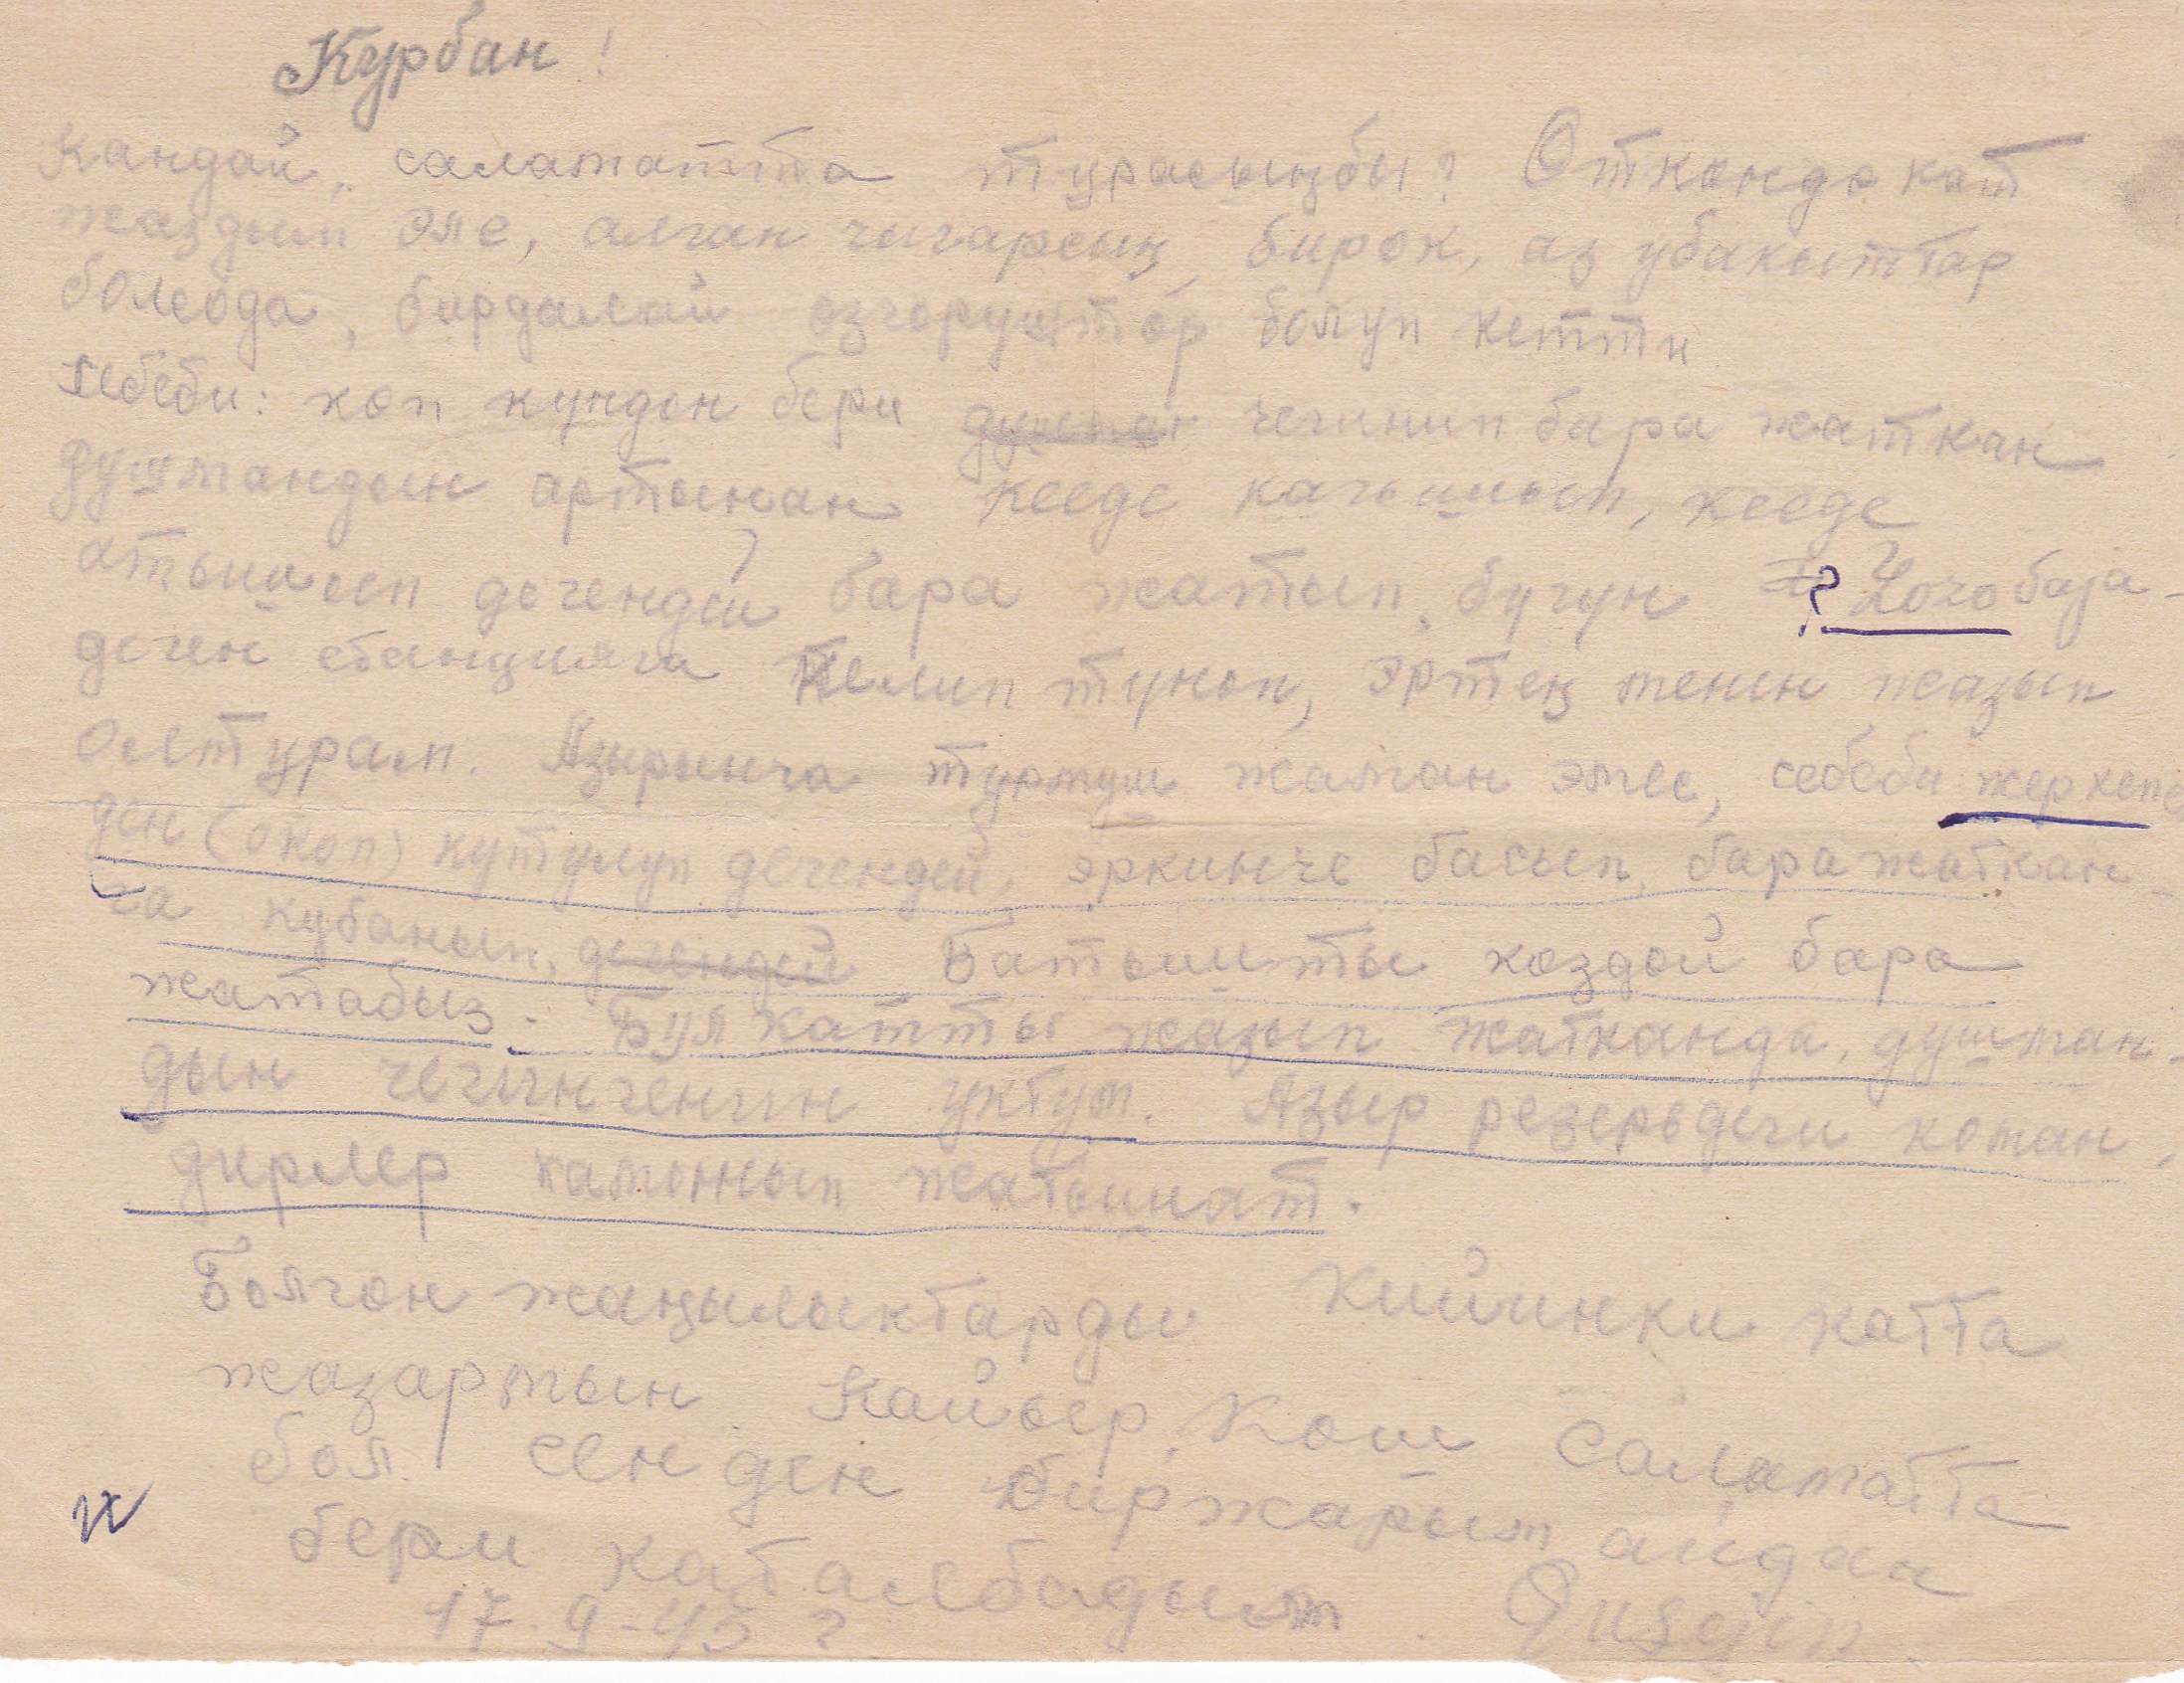 Курбан!
Кандай, саламатта турасыңбы? Откондо кат
жаздым эле, алган чыгарсың, бирок, аз убакыттар
болсода, бирдалай озгоруштор болуп кетти.
себеби: коп кундон бери душман чегинип бара жаткан
душмандын артынан кееде качышып, кееде
атышып дегендей бара жатып, бугун ? Чогобаја-
деген станцияга келип туноп, эртең менен жазып
олтурам. Азырынча турмуш жаман эмес, себеби жеркепе
ден (окоп) кутулуп дегендей, эркинче басып, баражаткан-
га кубанып, дегендей Батышты коздой бара
жатабыз. Бул катты жазып жатканда, душман-
дын чегингенин уктум. Азыр резервдеги коман,
дирлер камынып жатышат.
Болгон жаңылыктарды кийинки катта
жазармын. Кайыр, Кош саламатта
бол. Сенден биржарым айдан
бери каталбадым.
17-9-43 г